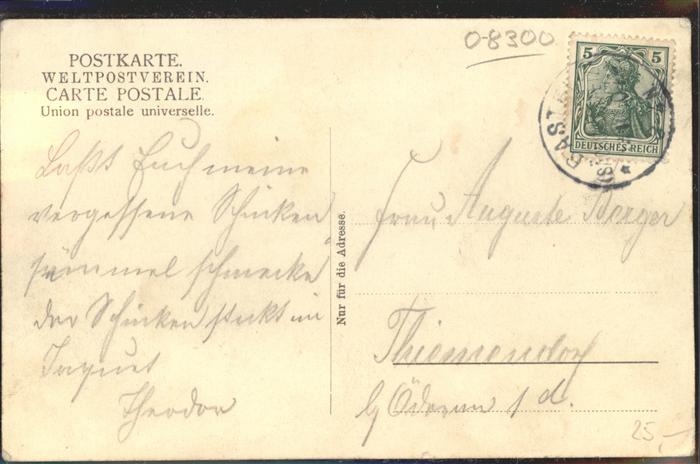 0-8300
POSTKARTE.
WELTPOSTVEREIN.
CARTE POSTALE.
Union postale universelle.
5 5
DEUTSCHES REICH
BASTEI
Laßt Euch meine
vergessene Schinken
semmel schmecken
der Schinken steckt im
Jaquet
Theodor
Nur für die Adresse.
Frau Auguste Berger
Thiemendorf
b/ Öderan i/d.
25,-